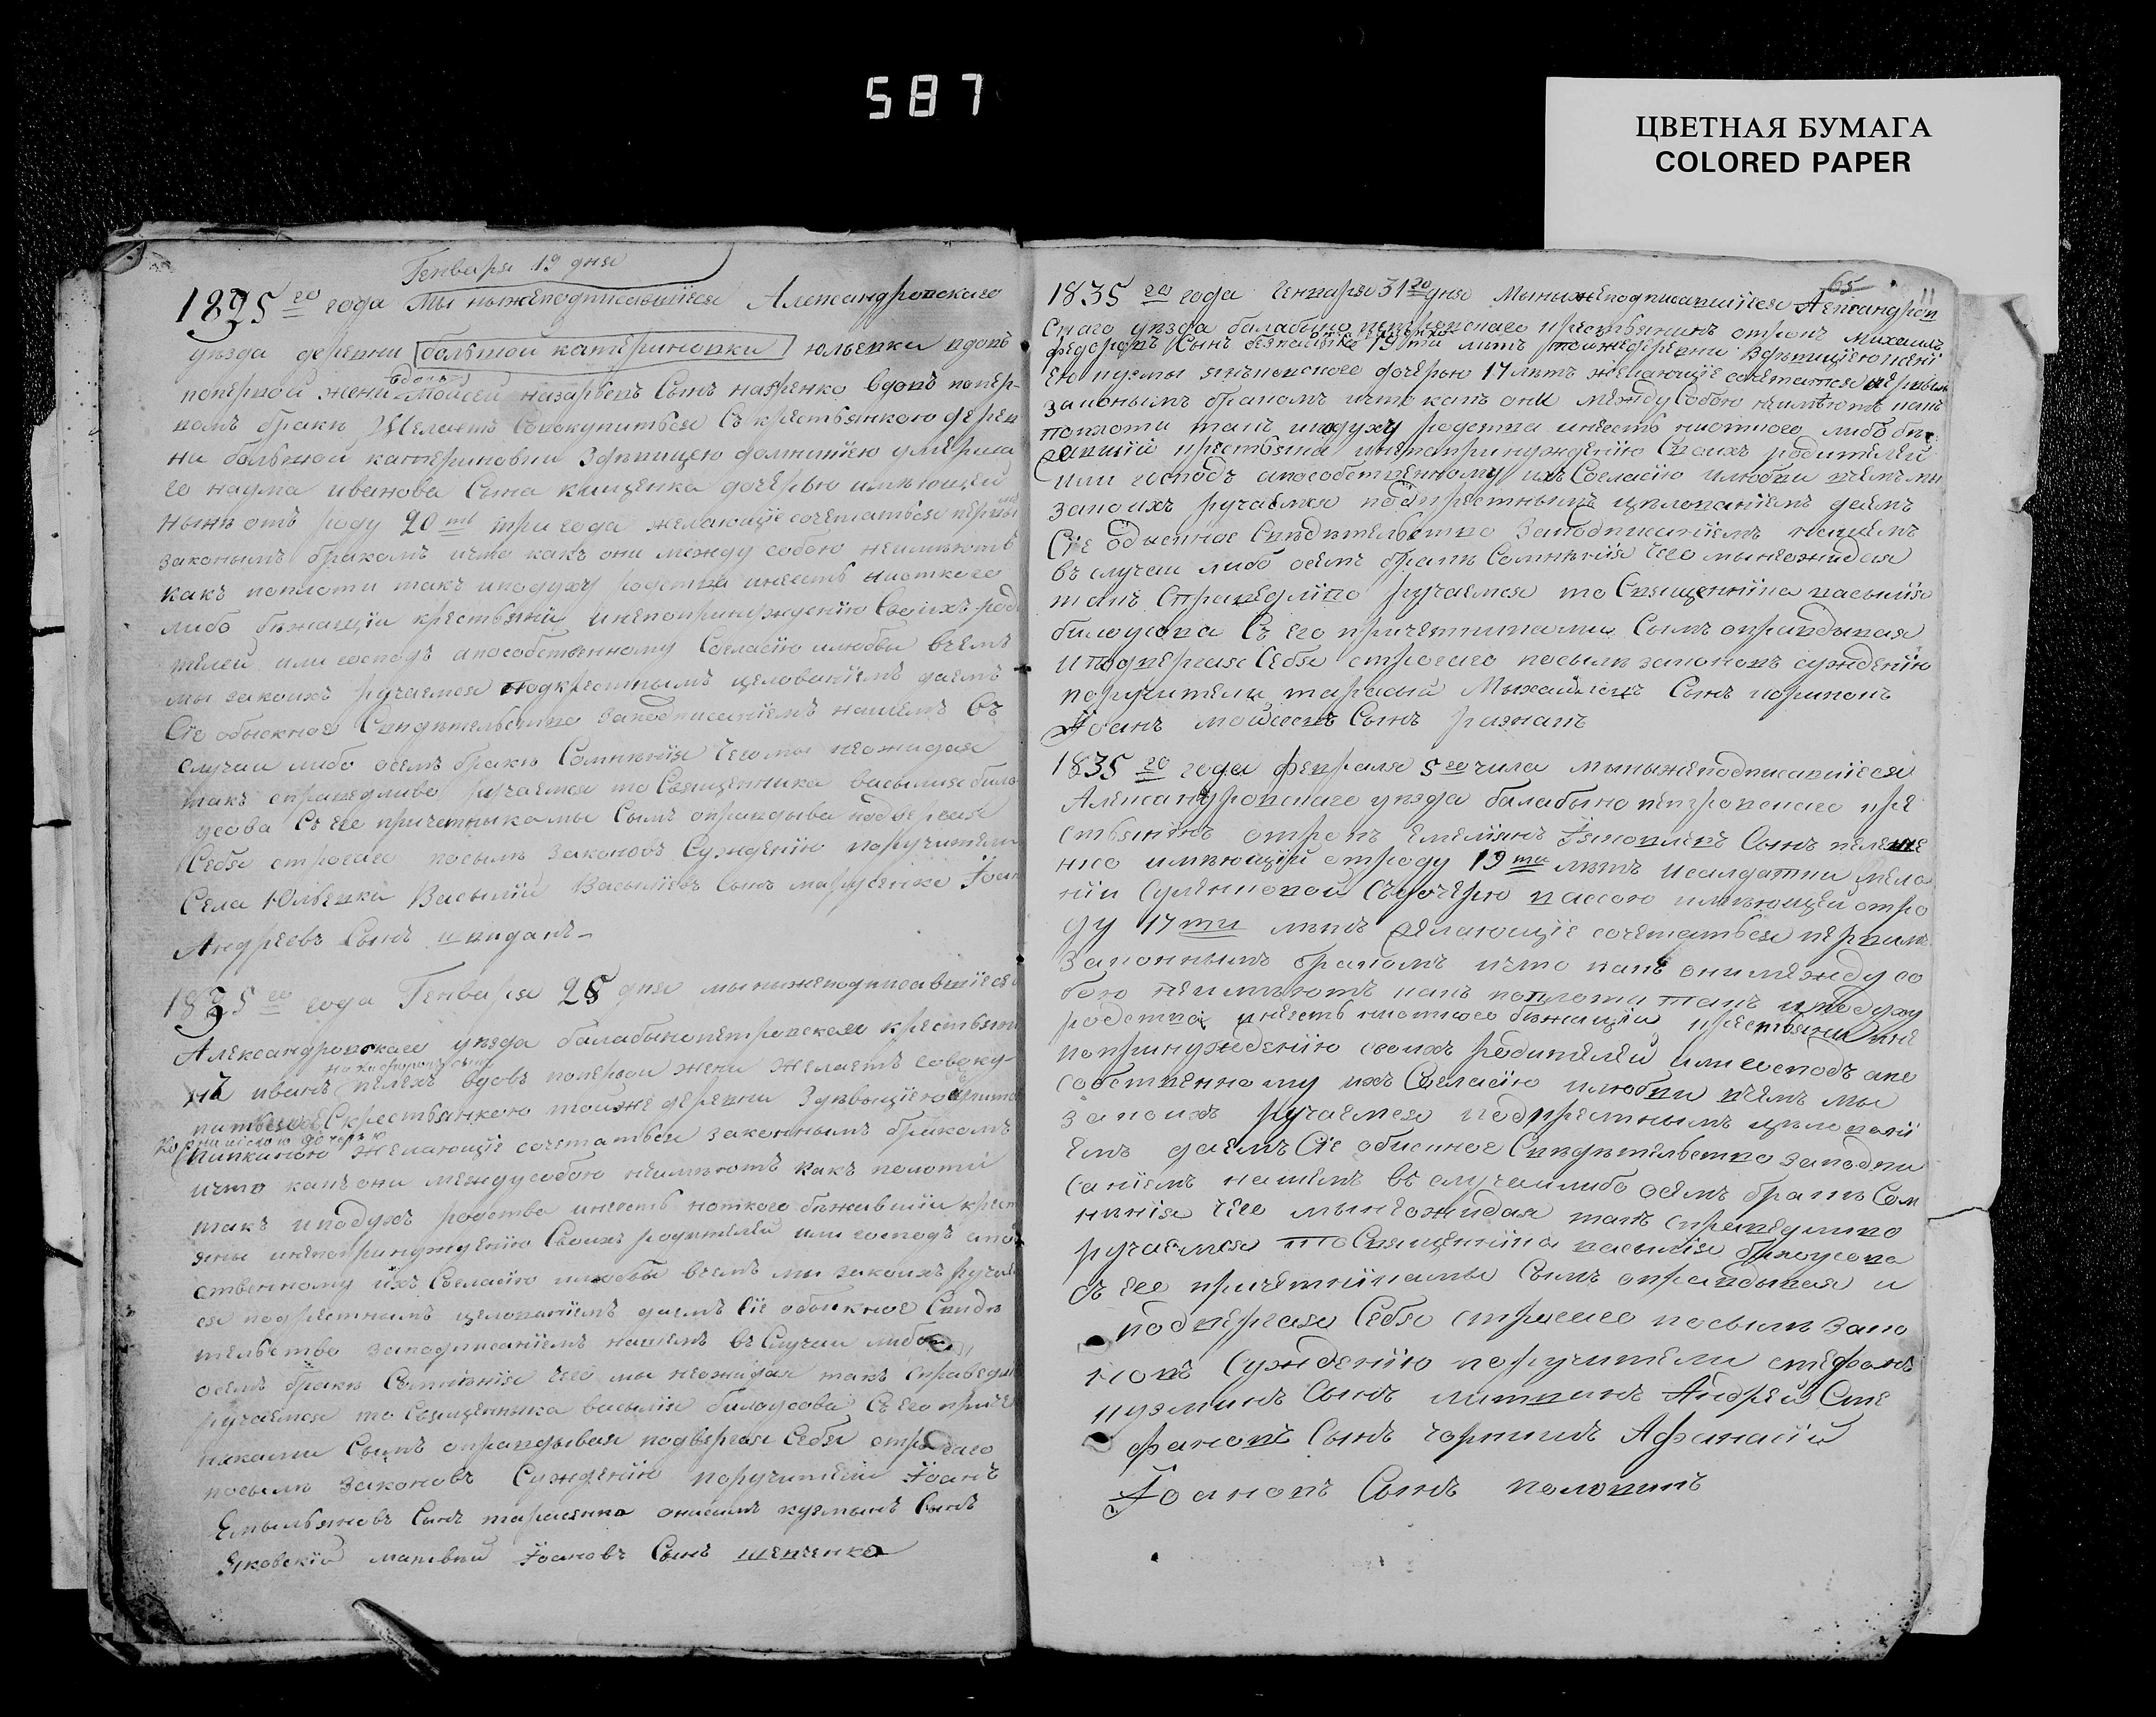 587
ЦВЕТНАЯ БУМАГА
COLORED PAPER
Генваря 19 дня
1835 го года Мы нижеподписавшиеся Александровскаго
уезда деревни большой катериновки юльевки вдовъ
поперой жени Моисей назаровъ Сынъ назренко вдовъ попер-
вомъ браки Желаетъ Совокупиться Съ крестьянкою дерев
ни большой катериновки Здевицею домникию умерша
го наума иванова Сына кищенка дочерью имеющей
ныне отъ роду 20 ть три года желающие сочетаться первы
законымъ бракомъ и что какъ они между собою неимеютъ
какъ поплоти такъ иподуху родства инеесть ниоткого
либо бежащии крестьяни инепопринуждению Своихъ роди
телей или господъ апособственному Согласию илюбви всемъ
мы закоихъ ручаемся подкрестнымъ целованиемъ даемъ
Сие обыскное Свидетельство заподписаниемъ нашемъ Въ
случаи либо осемъ браке Сомнения Чего мы неожидая
такъ справедливо ручаемся то Священника василия било
усова Съ его причетныкамы Сымъ оправдыва подвергая
Себя строгаго посыле законовъ Суждению поручители
Села Юльевки Василий Васылиевъ Сынъ марусенко Іоан
Андреевъ Сынъ
1835 го года Генваря 25 дня мы нижеподписавшиеся
Александровскаго уезда балабынопетровскаго крестьяни
нъ иванъ пелехъ вдовъ поперьои жени желаетъ совоку-
питься Скрестьянкою тойже деревни Здевыцею
желающие сочетаться законнымъ бракомъ
ичто какъ они между собою неимеютъ какъ поплоти
такъ иподухъ родства инеесть ноткого бежавшии крест
яны инепопринуждению Своихъ родителей или господъ апосоb
ственному ихъ Согласию илюбви всемъ мы закоихъ ручаем
ся подкрестнымъ целованиемъ даемъ Сие обыкное Свиде
тельство заподписаниемъ нашемъ въ Случаи либо
осемъ браке Сомнения Чего мы неожидая такъ Справедли
ручаемся то Священныка василия билоусова Съ его приче
никами Сымъ оправдывая подвергая Себя строгаго
посыле законовъ Суждению поручители Іоанъ
Емыльяновъ Сынъ тарасенко онисимъ кузмынъ Сынъ
Яковский матвий Іоановъ Сынъ шевченко
65
1835 го года Генваря 31 го дня Мы нижеподписавшиеся Александров
скаго уезда балабыно петровскаго крестьянинъ отрокъ Михаилъ
федоровъ Сынъ 19 ти летъ тойже деревни Здевицею
ею кузмы дочерью 17 летъ желающие сочетатся первымъ
законымъ бракомъ ичто какъ они между Собою неимеютъ какъ
поплоти такъ иподуху родства инеесть ниоткого либо бе
жавший крестьяна инепопринуждению Своихъ родителей
или господъ апособственному ихъ Согласию илюбви всемъ мы
закоихъ ручаемся подкрестнымъ целованиемъ даемъ
Сие обыскное Свидетельство Заподписаниемъ нашемъ
въ случаи либо осемъ браке Сомнения Чего мы неожидая
такъ Справедливо ручаемся то Священника василия
билоусова Съ его причетниками Сымъ оправдывая
и подвергая Себя строгаго посыле законовъ суждению
поручители тарасый Михайловъ Сынъ
Іоанъ мойсеевъ Сынъ
1835 го года Февраля 5 го чила мы нижеподписавшиеся
Александровскаго уезда балабыно петровскаго кре
стьянинъ отрокъ Емелиянъ Яковлевъ Сынъ
нко имеющий отроду 19 ти летъ исалдатки мела
нии Съдочерю вассою имеющей отро
ду 17 ти летъ желающие сочетаться первымъ
Законнымъ бракомъ ичто какъ они между со
бою неимеютъ какъ поплоти такъ иподуху
родства инеесть ниоткого бежащии крестьяни ине
попринуждению своихъ родителей или господъ апо
собственному ихъ Согласию илюбви всемъ мы
закоихъ ручаемся подкрестнымъ целовани
емъ даемъ Сие обыскное Свидетельство заподпи
саниемъ нашемъ въ случаи либо осемъ браке Сом
нения Чего мы неожидая такъ справедливо
ручаемся то Священника василия билоусова
съ его причетникамы Сымъ оправдывая и
подвергая Себя строгаго посыле зако
новъ Суждению поручители стефанъ
кузминъ Сынъ литвинъ Андрей Сте
фановъ Сынъ Афанасий
Іоановъ Сынъ